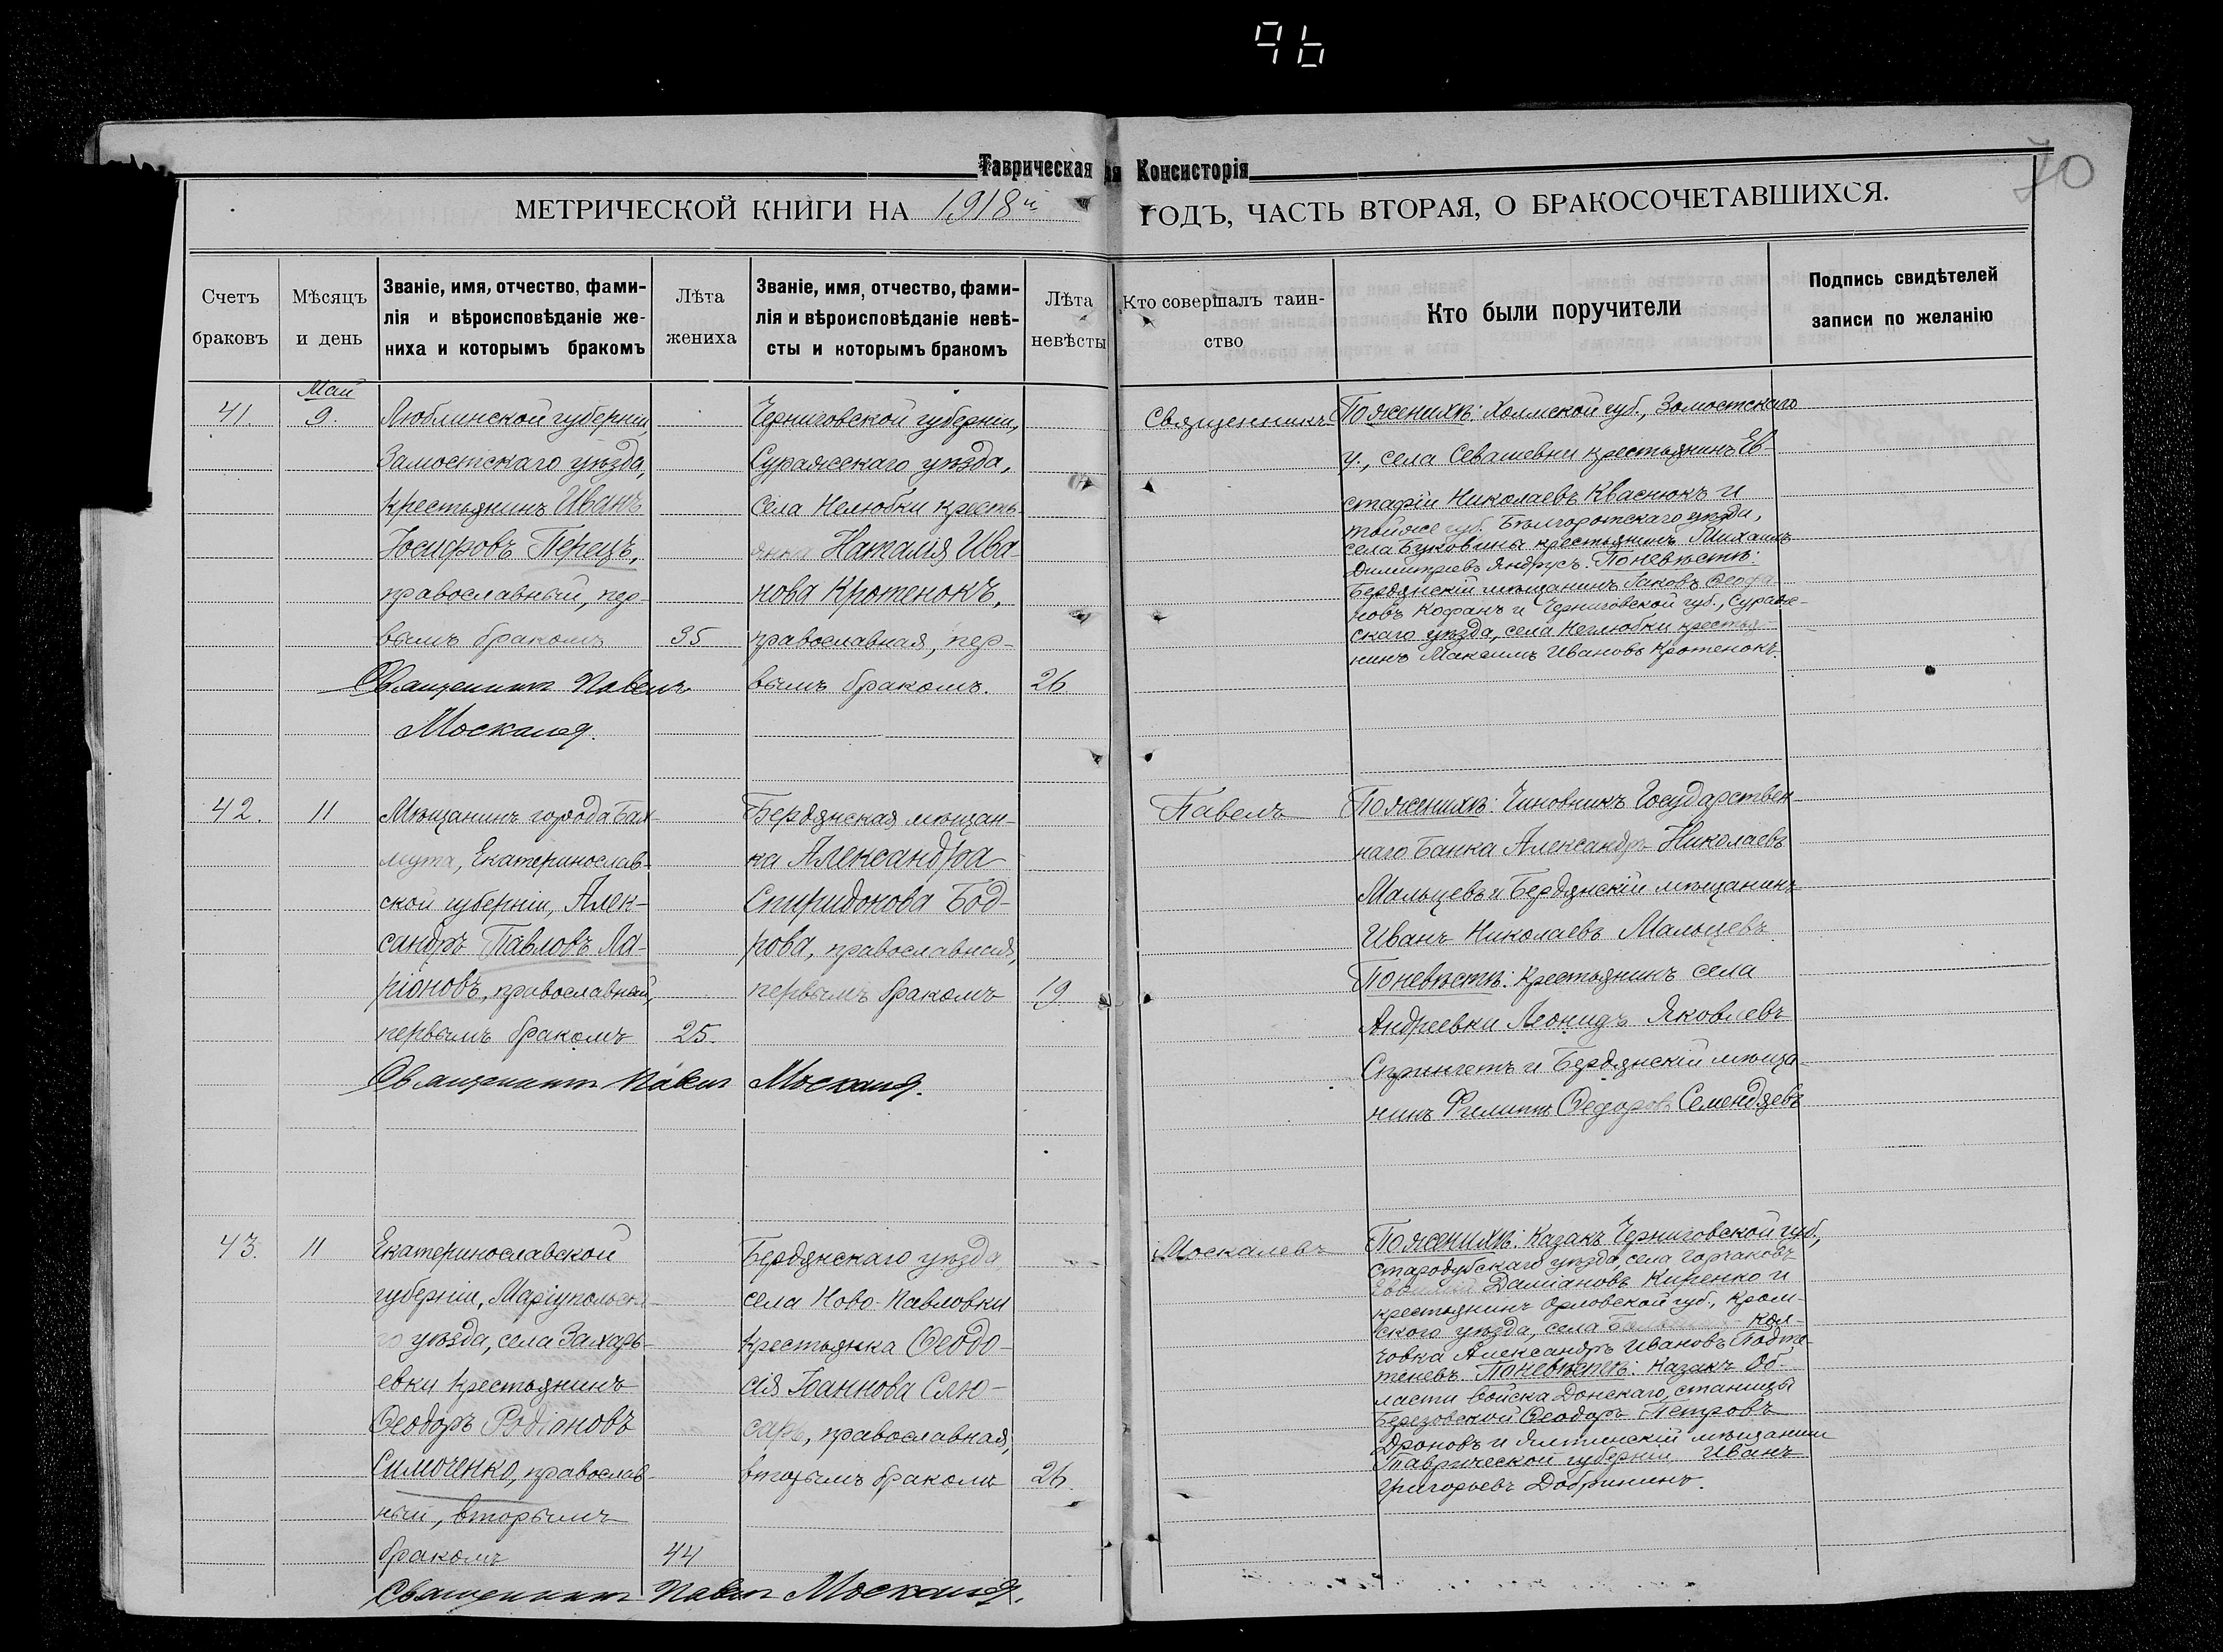 96
Таврическая ая Консисторія
70
МЕТРИЧЕСКОЙ КНИГИ НА 1918й ГОДЪ, ЧАСТЬ ВТОРАЯ, О БРАКОСОЧЕТАВШИХСЯ.
Счетъ
браковъ
Мѣсяцъ
и день
Званіе, имя, отчество, фами-
лія и вѣроисповѣданіе же-
ниха и которымъ бракомъ
Лѣта
жениха
Званіе, имя, отчество, фами-
лія и вѣроисповѣданіе невѣ-
сты и которымъ бракомъ
Лѣта
невѣсты
Кто совершалъ таин-
ство
Кто были поручители
Подпись свидѣтелей
записи по желанію
41.
Май
9.
Люблинской губерніи,
Замостскаго уѣзда,
крестьянинъ Иванъ
Іосифовъ Перецъ,
православный, пер-
вымъ бракомъ
35
Священникъ Павелъ
Москалев.
Черниговской губерніи,
Суражскаго уѣзда,
села Нелюбки кресть-
янка Наталія Ива-
нова Кротенокъ,
православная, пер-
вымъ бракомъ.
26
Священникъ
По женихѣ: Холмской губ., Замостскаго
у., села Севашевки крестьянинъ Ев-
стафій Николаевъ Кваснюкъ и
тойже губ. Бѣлгоротскаго уѣзда,
села Буковины крестьянинъ Михаилъ
Димитріевъ Андрусъ. По невѣстѣ:
Бердянскій мѣщанинъ Іаковъ Феофа-
новъ Кофанъ и Черниговской губ., Сураж-
скаго уѣзда, села Неглюбки крестья-
нинъ Максимъ Ивановъ Кротенокъ.
42.
11
Мѣщанинъ города Бах-
мута, Екатеринослав-
ской губерніи, Алек-
сандръ Павловъ Ла-
ріоновъ, православный,
первымъ бракомъ
25.
Священникъ Павел Москалев.
Бердянская мѣщан-
ка Александра
Спиридонова Бод-
рова, православная,
первымъ бракомъ
19
Павелъ
По женихѣ: Чиновникъ Государствен-
наго Банка Александръ Николаевъ
Мальцевъ и Бердянскій мѣщанинъ
Иванъ Николаевъ Мальцевъ.
По невѣстѣ: Крестьянинъ села
Андреевки Леонидъ Яковлевъ
Спрингетъ и Бердянскій мѣща-
нинъ Филиппъ Федоровъ Семендяевъ
43.
11
Екатеринославской
губерніи, Маріупольска-
го уѣзда, села Захарь-
евки крестьянинъ
Феодоръ Родіоновъ
Симоченко, православ-
ный, вторымъ
бракомъ
44
Священникъ Павел Москалев.
Бердянскаго уѣзда,
села Ново-Павловки
крестьянка Феодо-
сія Іоаннова Слю-
сарь, православная,
вторымъ бракомъ
26.
Москалевъ
По женихѣ: Казакъ Черниговской губ.,
Стародубскаго уѣзда, села Горчаковъ
Даміановъ Киренко и
крестьянинъ Орловской губ., Кром-
ского уѣзда, села Кол-
човка Александръ Ивановъ Подте-
теневъ. По невѣстѣ: Казакъ Об-
ласти войска Донскаго, станицы
Березовской Феодоръ Петровъ
Дроновъ и Ялтинскій мѣщанинъ
Таврической губерніи Иванъ
Григорьевъ Добрынинъ.